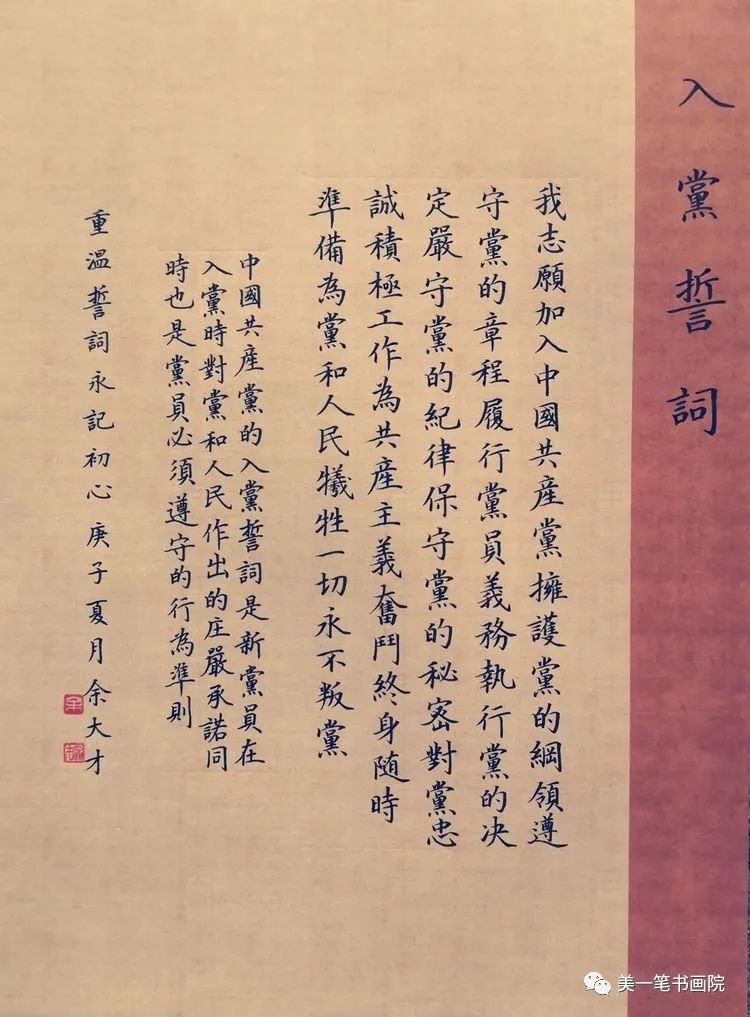 入黨誓詞
我志願加入中國共産黨擁護黨的綱領遵
守黨的章程履行黨員義務執行黨的决
定嚴守黨的紀律保守黨的秘密對黨忠
誠積極工作為共産主義奮鬥終身隨時
準備為黨和人民犧牲一切永不叛黨
中國共産黨的入黨誓詞是新黨員在
入黨時對黨和人民作出的庄嚴承諾同
時也是黨員必須遵守的行為準則
重温誓詞永記初心 庚子夏月余大才
美一笔书画院